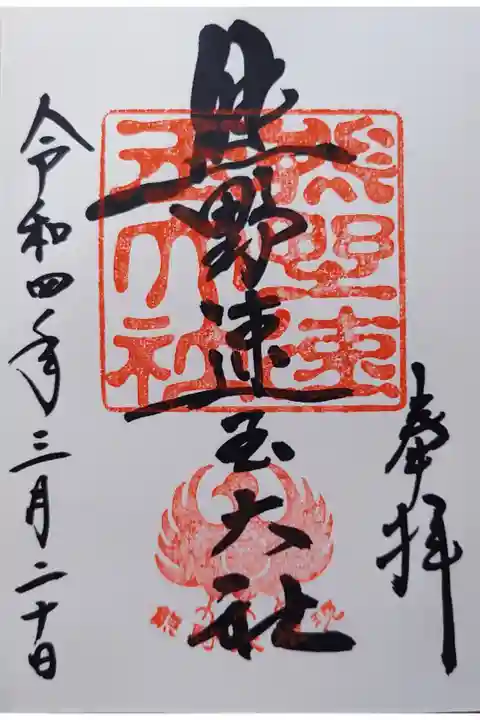 奉拝
熊野速玉大社
令和四年三月二十日
熊野速
玉大社